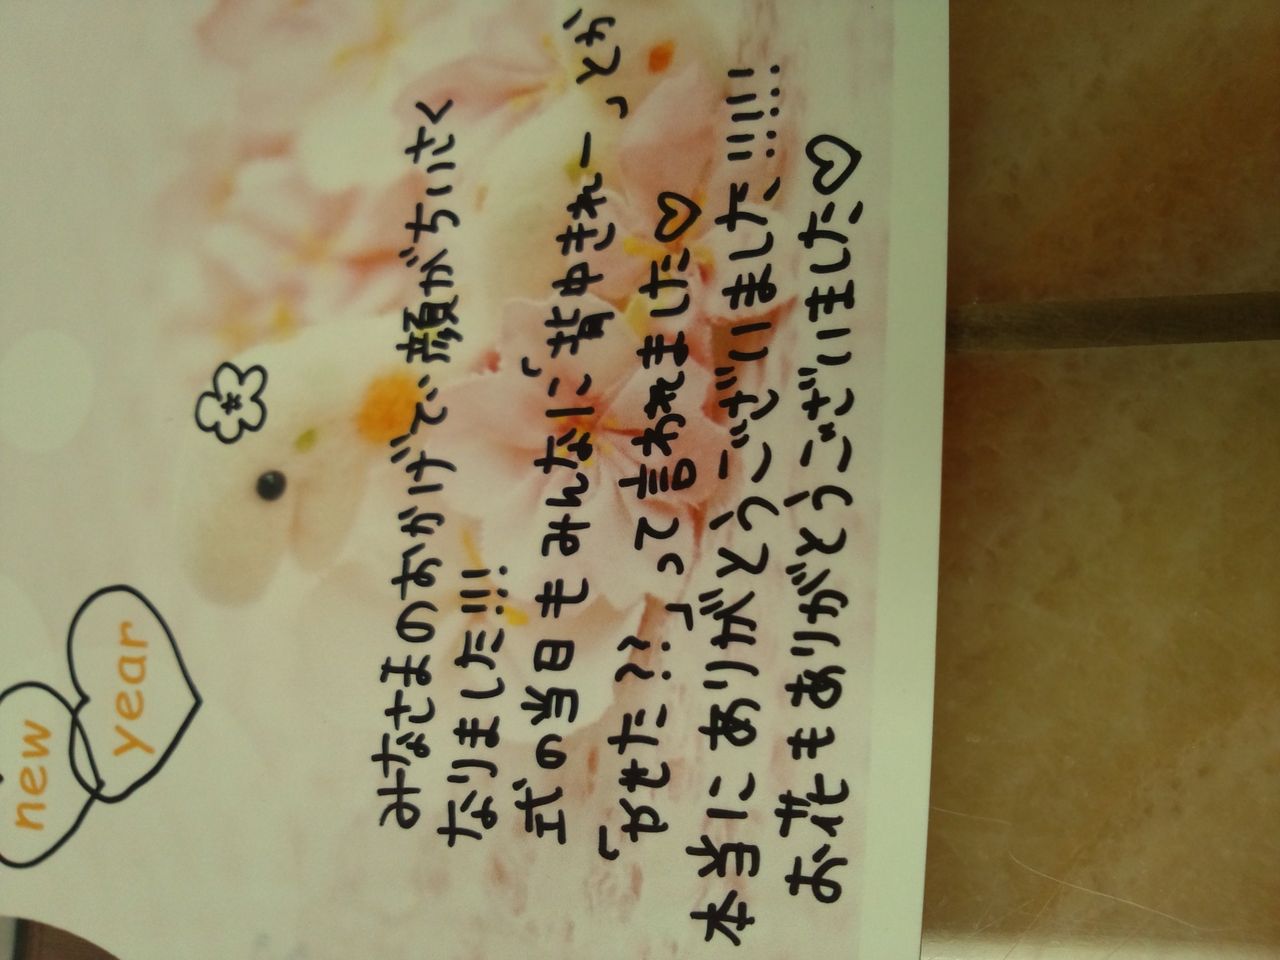 new
year
みなさまのおかげで、顔がちいさく
なりました!!!
式の当日もみんなに「背中きれー」とか
「やせた??」って言われました♡
本当にありがとうございました!!!!!
お花もありがとうございました♡